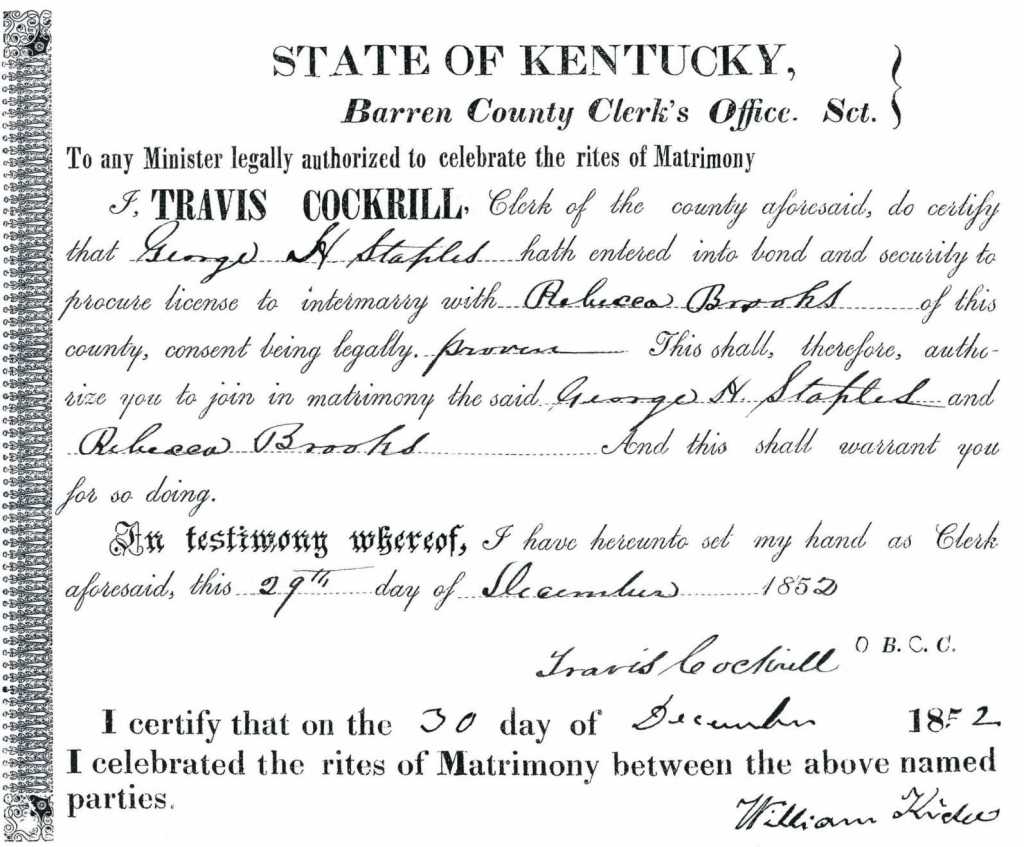 STATE OF KENTUCKY,
Barren County Clerk's Office. Sct.
To any Minister legally authorized to celebrate the rites of Matrimony
I, TRAVIS COCKRILL, Clerk of the county aforesaid, do certify
that George H Staples hath entered into bond and security to
procure license to intermarry with Rebecca Brooks of this
county, consent being legally. proven This shall, therefore, autho-
rize you to join in matrimony the said George H Staples and
Rebecca Brooks And this shall warrant you
for so doing.
In testimony whereof, I have hereunto set my hand as Clerk
aforesaid, this 29th day of December 1852
Travis Cockrill C B. C. C.
I certify that on the 30 day of December 1852
I celebrated the rites of Matrimony between the above named
parties.
William